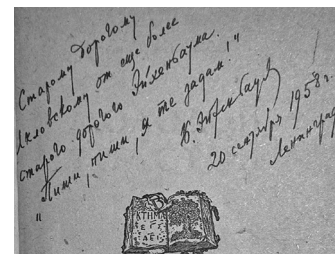 Старому дорогому
Шкловскому от еще более
старого дорогого Эйхенбаума.
"Пиши, пиши, я те задам!"
Б. Эйхенбаум
20 сентября 1958 г.
Ленинград
ΚΤΗΜΑ
ΕΣ
ΑΕΙ